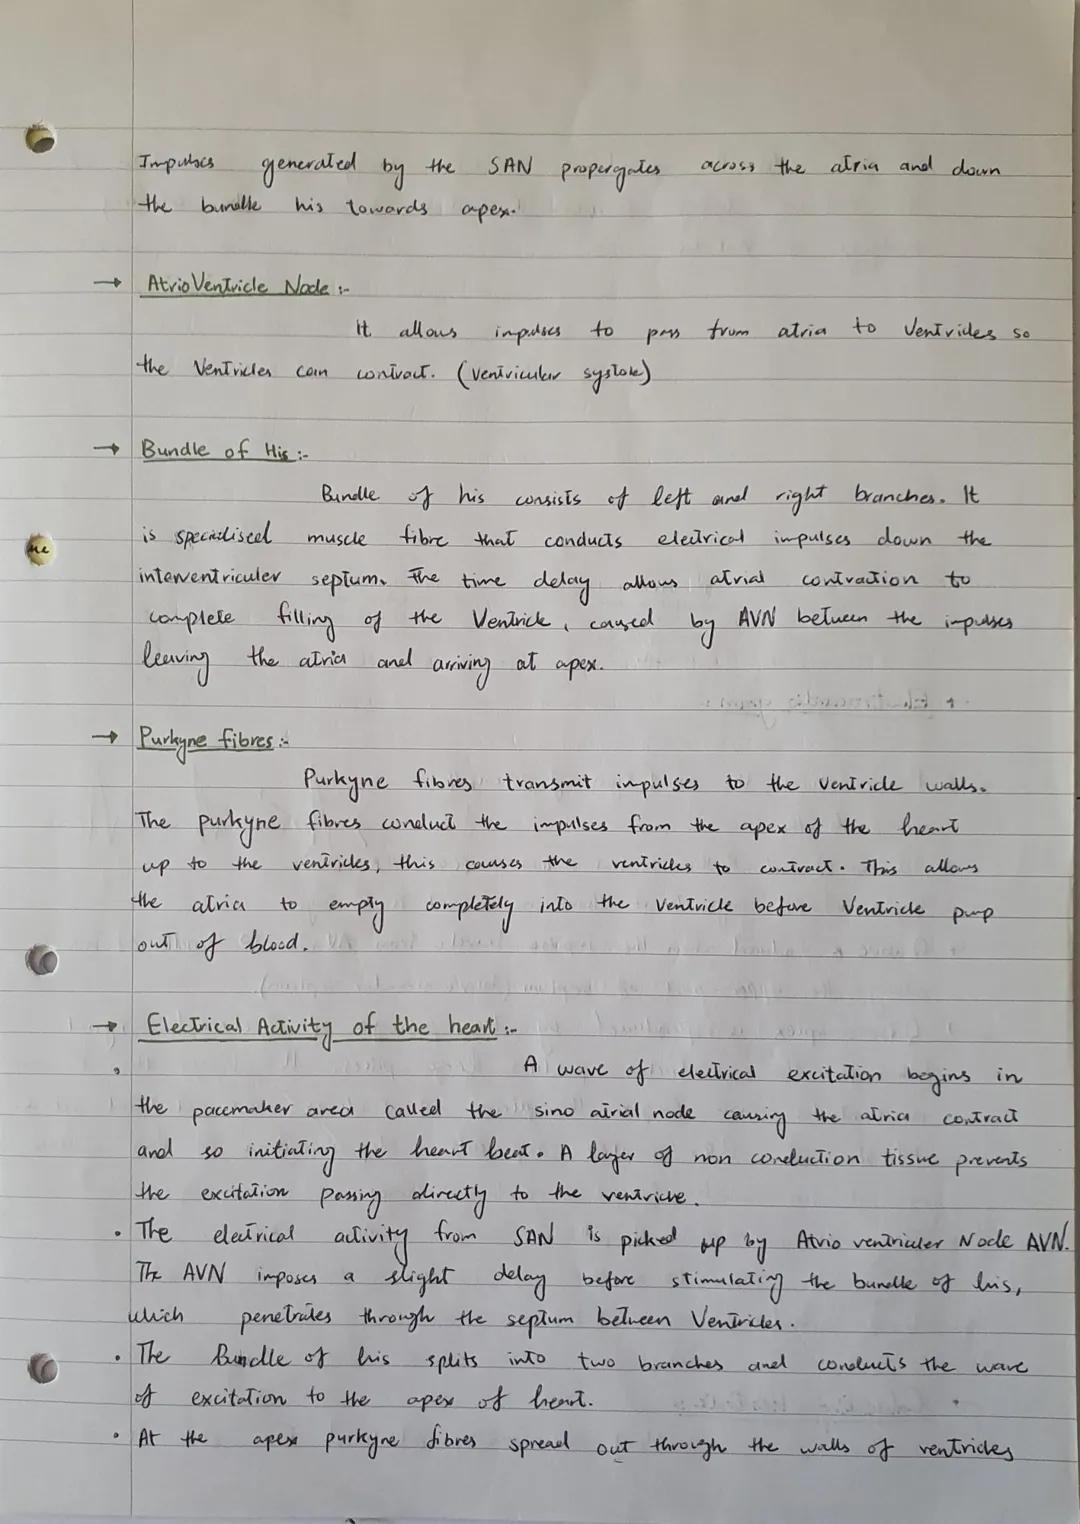 Impulses generated by the SAN propergates across the atria and down
the bundle his towards apex.
→ AtrioVentricle Node :-
It allows impulses to pass from atria to Ventricles so
the Ventricles can contract. (Ventricular systole)
→ Bundle of His :-
Bundle of his consists of left and right branches. It
is specialised muscle fibre that conducts electrical impulses down the
interventriculer septum. The time delay allows atrial contraction to
complete filling of the Ventricle, caused by AVN between the impulses
leaving the atria and arriving at apex.
→ Purkyne fibres :-
Purkyne fibres transmit impulses to the ventricle walls.
The purkyne fibres conduct the impulses from the apex of the heart
up to the ventricles, this causes the ventricles to contract. This allows
the atria to empty completely into the Ventricle before Ventricle pump
out of blood.
→ Electrical Activity of the heart :-
A wave of electrical excitation begins in
the pacemaker area called the sino atrial node causing the atria contract
and so initiating the heart beat. A layer of non conduction tissue prevents
the excitation passing directly to the ventricle.
• The electrical activity from SAN is picked up by Atrio ventriculer Node AVN.
The AVN imposes a slight delay before stimulating the bundle of his,
which penetrates through the septum between Ventricles.
• The Bundle of his splits into two branches and conducts the wave
of excitation to the apex of heart.
• At the apex purkyne fibres spread out through the walls of ventricles